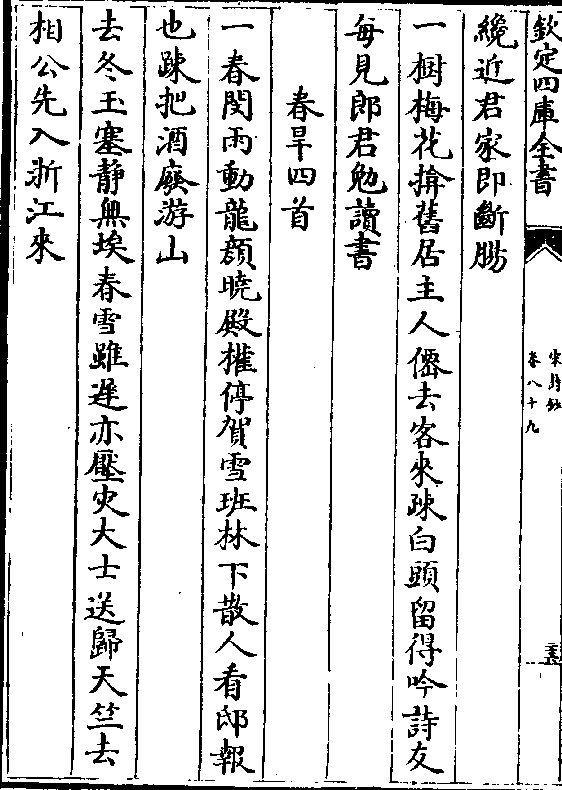 欽定四庫全書
宋詩鈔
卷八十九
纔近君家即斷腸
一樹梅花揜舊居主人僊去客來疎白頭留得吟詩友
每見郎君勉讀書
春旱四首
一春閔雨動龍顔曉殿權停賀雪班林下散人看邸報
也疎把酒廢游山
去冬玉塞靜無埃春雪雖遲亦壓灾大士送歸天竺去
相公先入浙江來